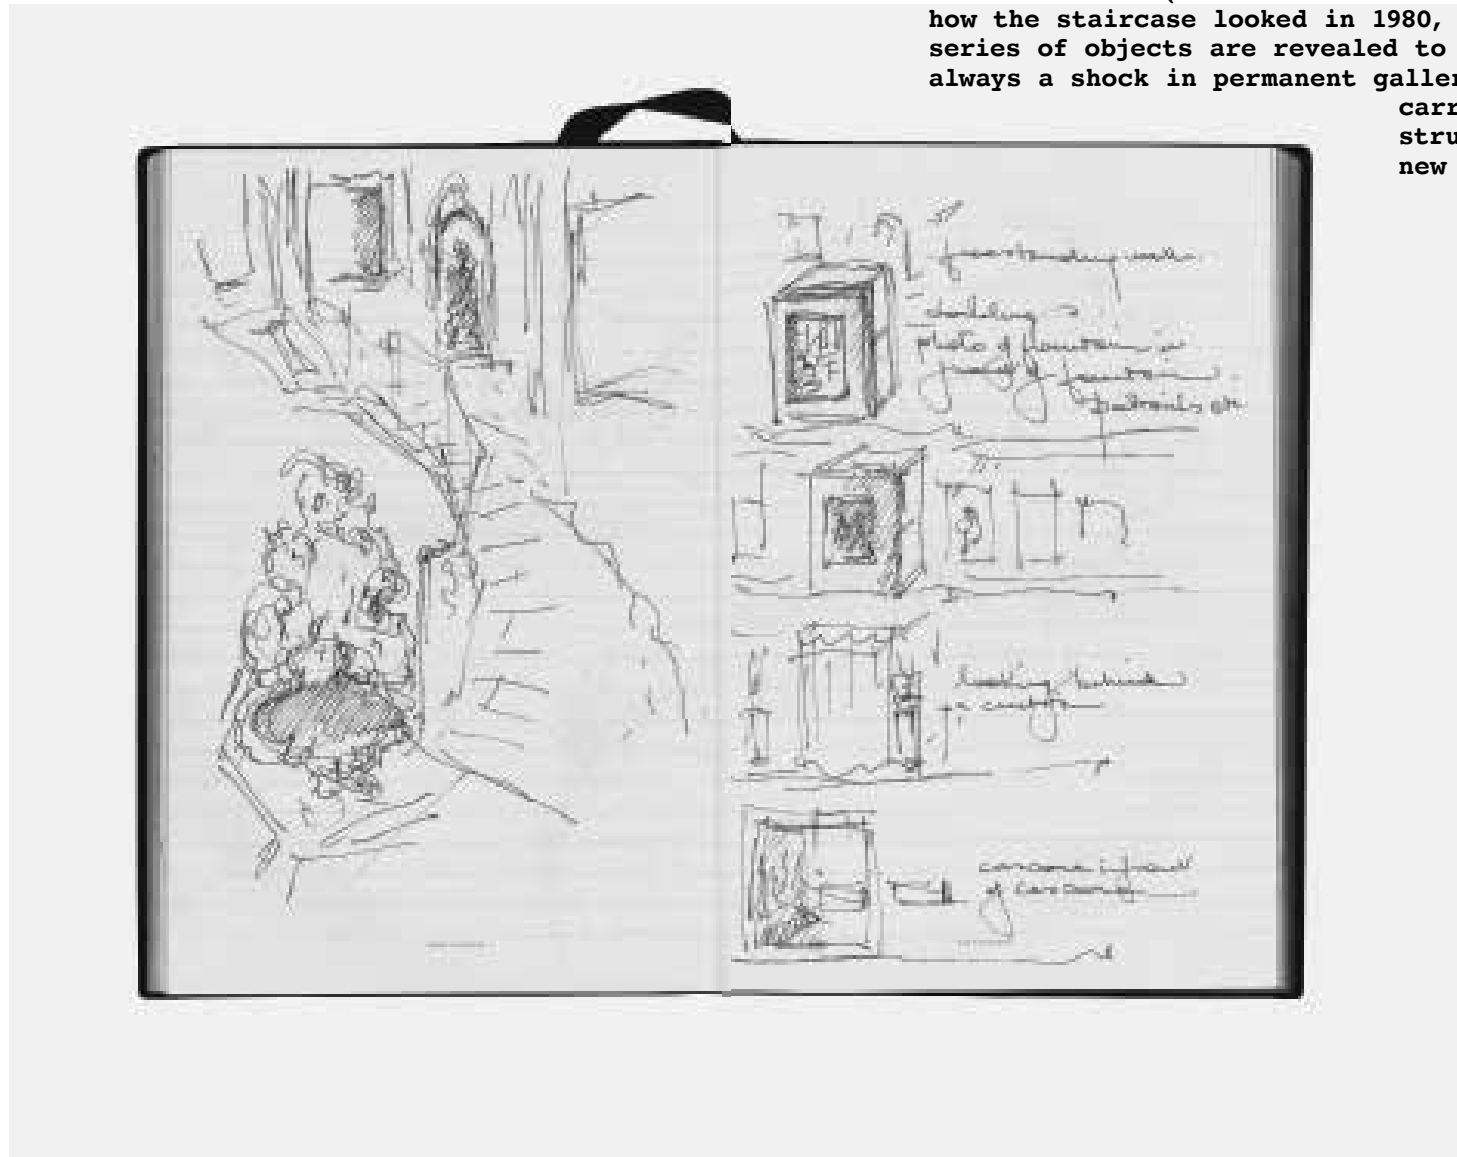 how the staircase looked in 1980,
series of objects are revealed to
always a shock in permanent galler
carr
stru
new
freestanding walls
doubling
photo of fountain in
front of fountain
portraits etc
looking behind
a curtain
in front
of